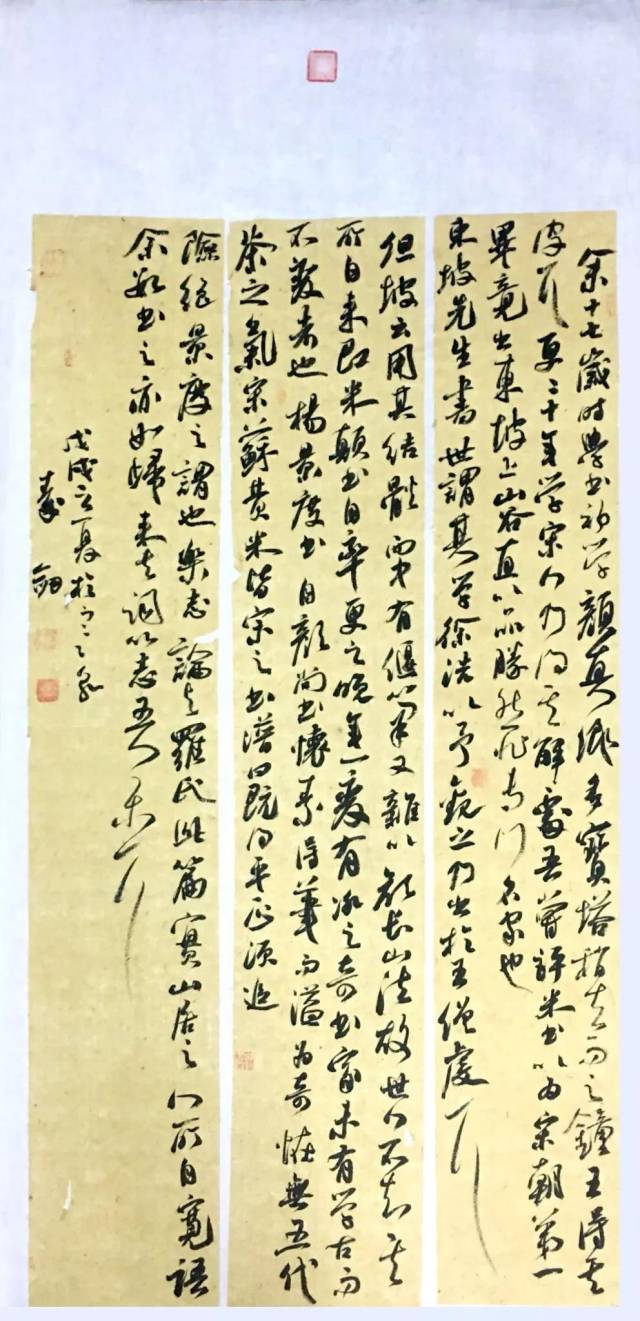 余十七歲时學书初学顏真卿多寶塔稍去而之鐘王得其
皮耳更二十年学宋人乃得其解處吾嘗評米书以為宋朝第一
畢竟出東坡上山谷直以品勝然非专门名家也
東坡先生書世謂其学徐浩以予觀之乃出於王僧虔耳
但坡云用其结體而中有偃筆又雜以顏常山法故世人不知其
所自来即米顛书自率更之晚年一變有冰之奇书家未有学古而
不變者也楊景度书自顏尚书懷素得筆而溢為奇恠無五代
荼之氣宋蘇黄米皆宋之书谱曰既得平正須追
險绝景度之謂也樂志論与羅氏此篇實山居之人所自寬語
余数书之亦如歸来去詞以志吾樂耳
戊戌立夏於